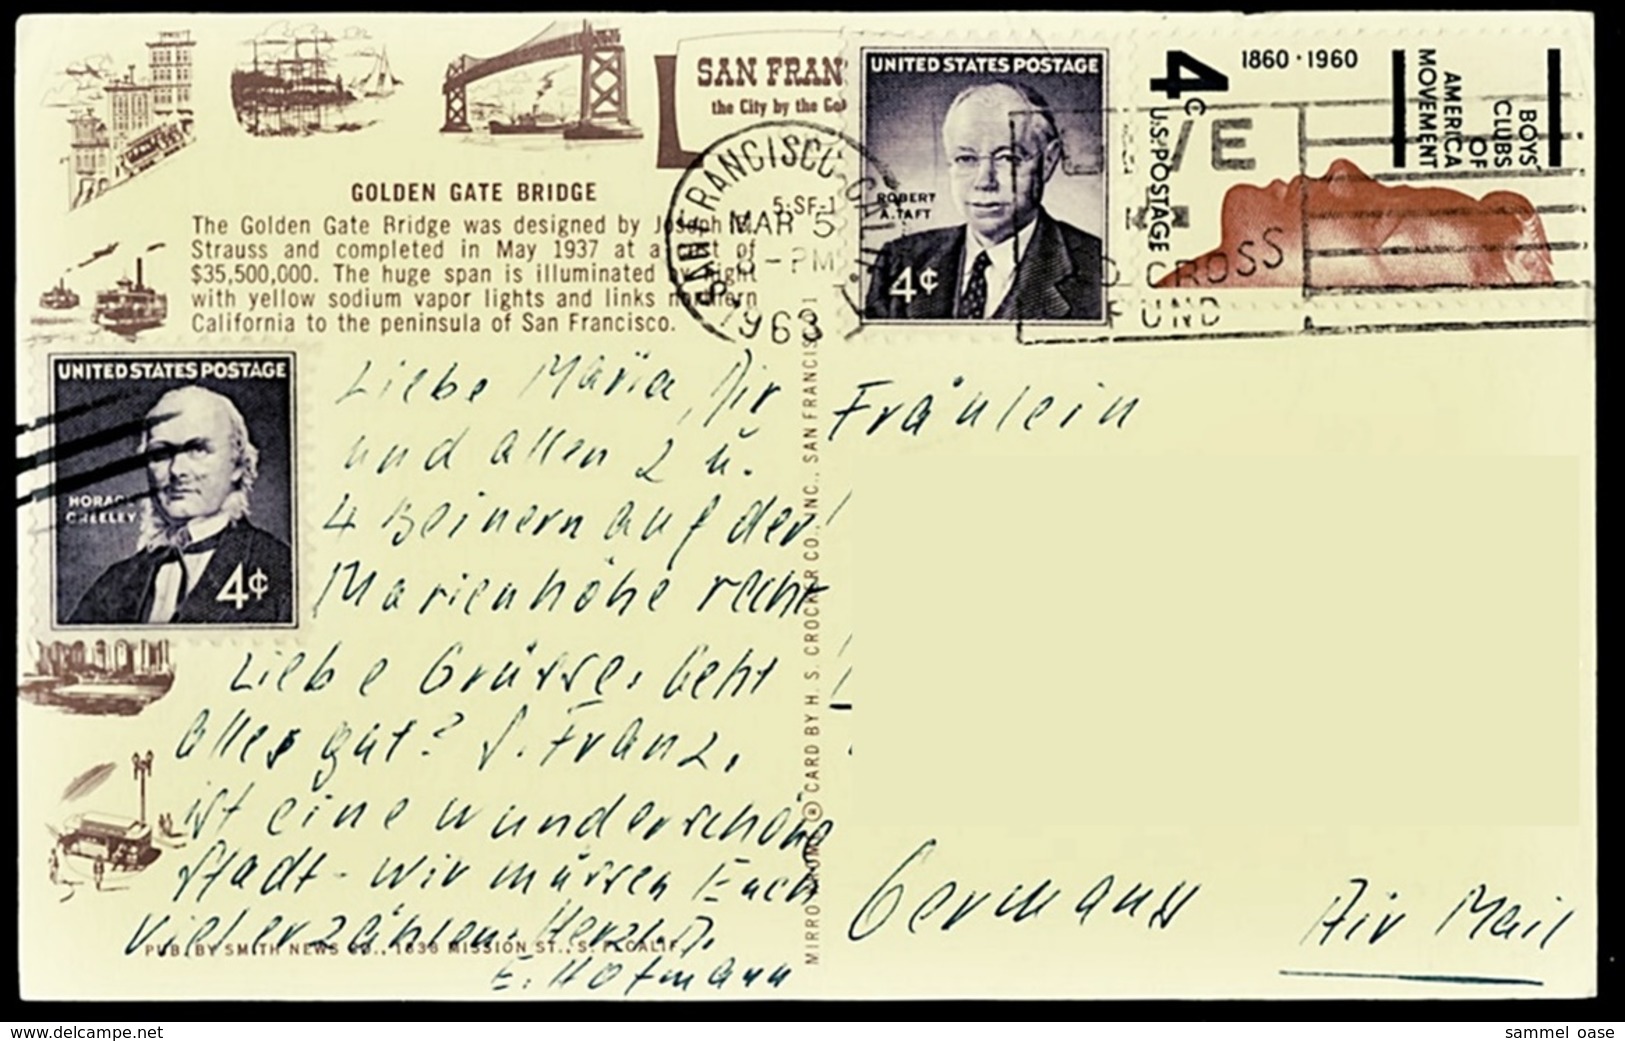 SAN FRAN
the City by the Go
GOLDEN GATE BRIDGE
The Golden Gate Bridge was designed by Joseph B.
Strauss and completed in May 1937 at a cost of
$35,500,000. The huge span is illuminated by night
with yellow sodium vapor lights and links northern
California to the peninsula of San Francisco.
SAN FRANCISCO CALIF.
5-SF-1
MAR 5
8 - PM
1963
UNITED STATES POSTAGE
ROBERT
A. TAFT
4¢
4¢ U.S. POSTAGE
1860 · 1960
BOYS'
CLUBS
OF
AMERICA
MOVEMENT
VE
CROSS
FUND
UNITED STATES POSTAGE
HORACE
GREELEY
4¢
Liebe Maria, Dir
und allen 2 u.
4 Beinern auf der
Marienhöhe recht
Liebe Grüsse. Geht
alles gut? S. Franz.
ist eine wunderschöne
Stadt - wir müssen Euch
viel erzählen. Herzl.
E. Hofmann
PUB. BY SMITH NEWS CO., 1838 MISSION ST., S. F., CALIF.
MIRRO-KROME ® CARD BY H. S. CROCKER CO., INC., SAN FRANCISCO 1
Fräulein
Germany
Air Mail
www.delcampe.net
sammel_oase